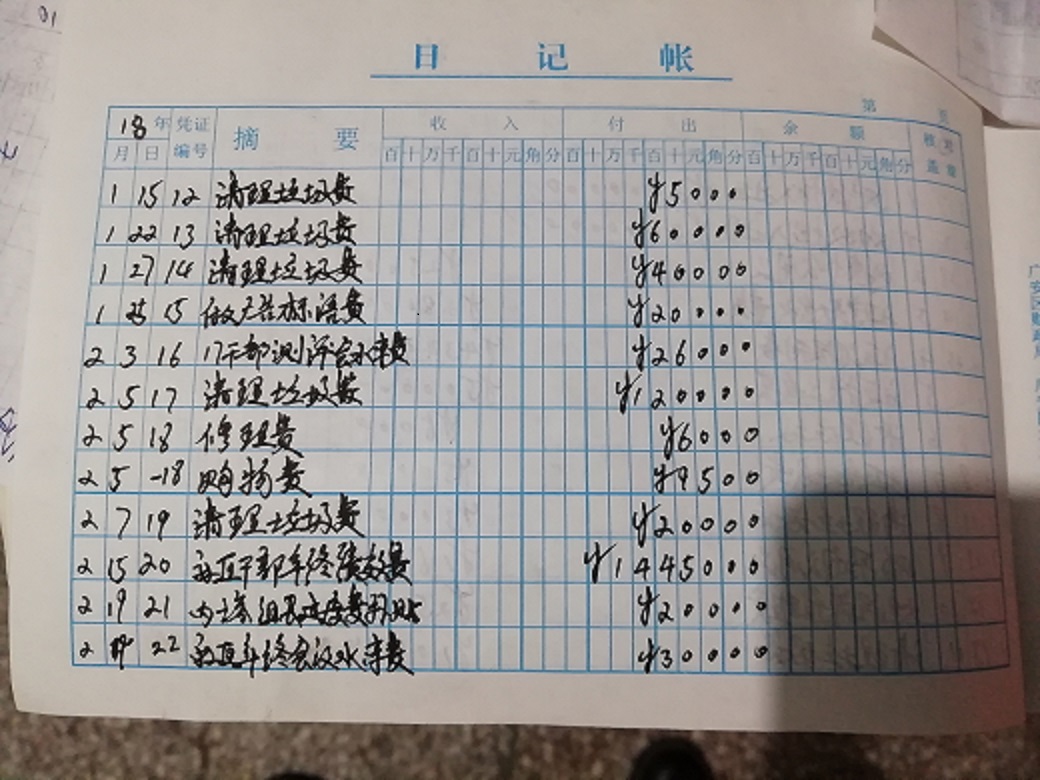 日 记 帐
18年 凭证 摘 要 收 入 付 出 余 额 核对
月 日 编号 百十万千百十元角分 百十万千百十元角分 百十万千百十元角分 盖章
第 页
1 15 12 清理垃圾费 ¥5000
1 22 13 清理垃圾费 ¥60000
1 27 14 清理垃圾费 ¥40000
1 15 做广告标语费 ¥20000
2 3 16 17干部测评会水果费 ¥26000
2 5 17 清理垃圾费 ¥120000
2 5 18 修理费 ¥6000
2 5 -18 购物费 ¥9500
2 7 19 清理垃圾费 ¥20000
2 15 20 干部年终绩效费 ¥1445000
2 19 21 组 费 ¥20000
2 22 年终会议水果费 ¥30000